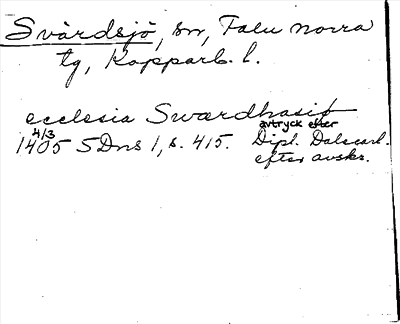 Svärdsjö, sn, Falu norra
tg, Kopparb. l.
ecclesia Swærdhasio
avtryck efter
4/3
1405 SDns 1, s. 415. Dipl. Dalecarl.
efter avskr.